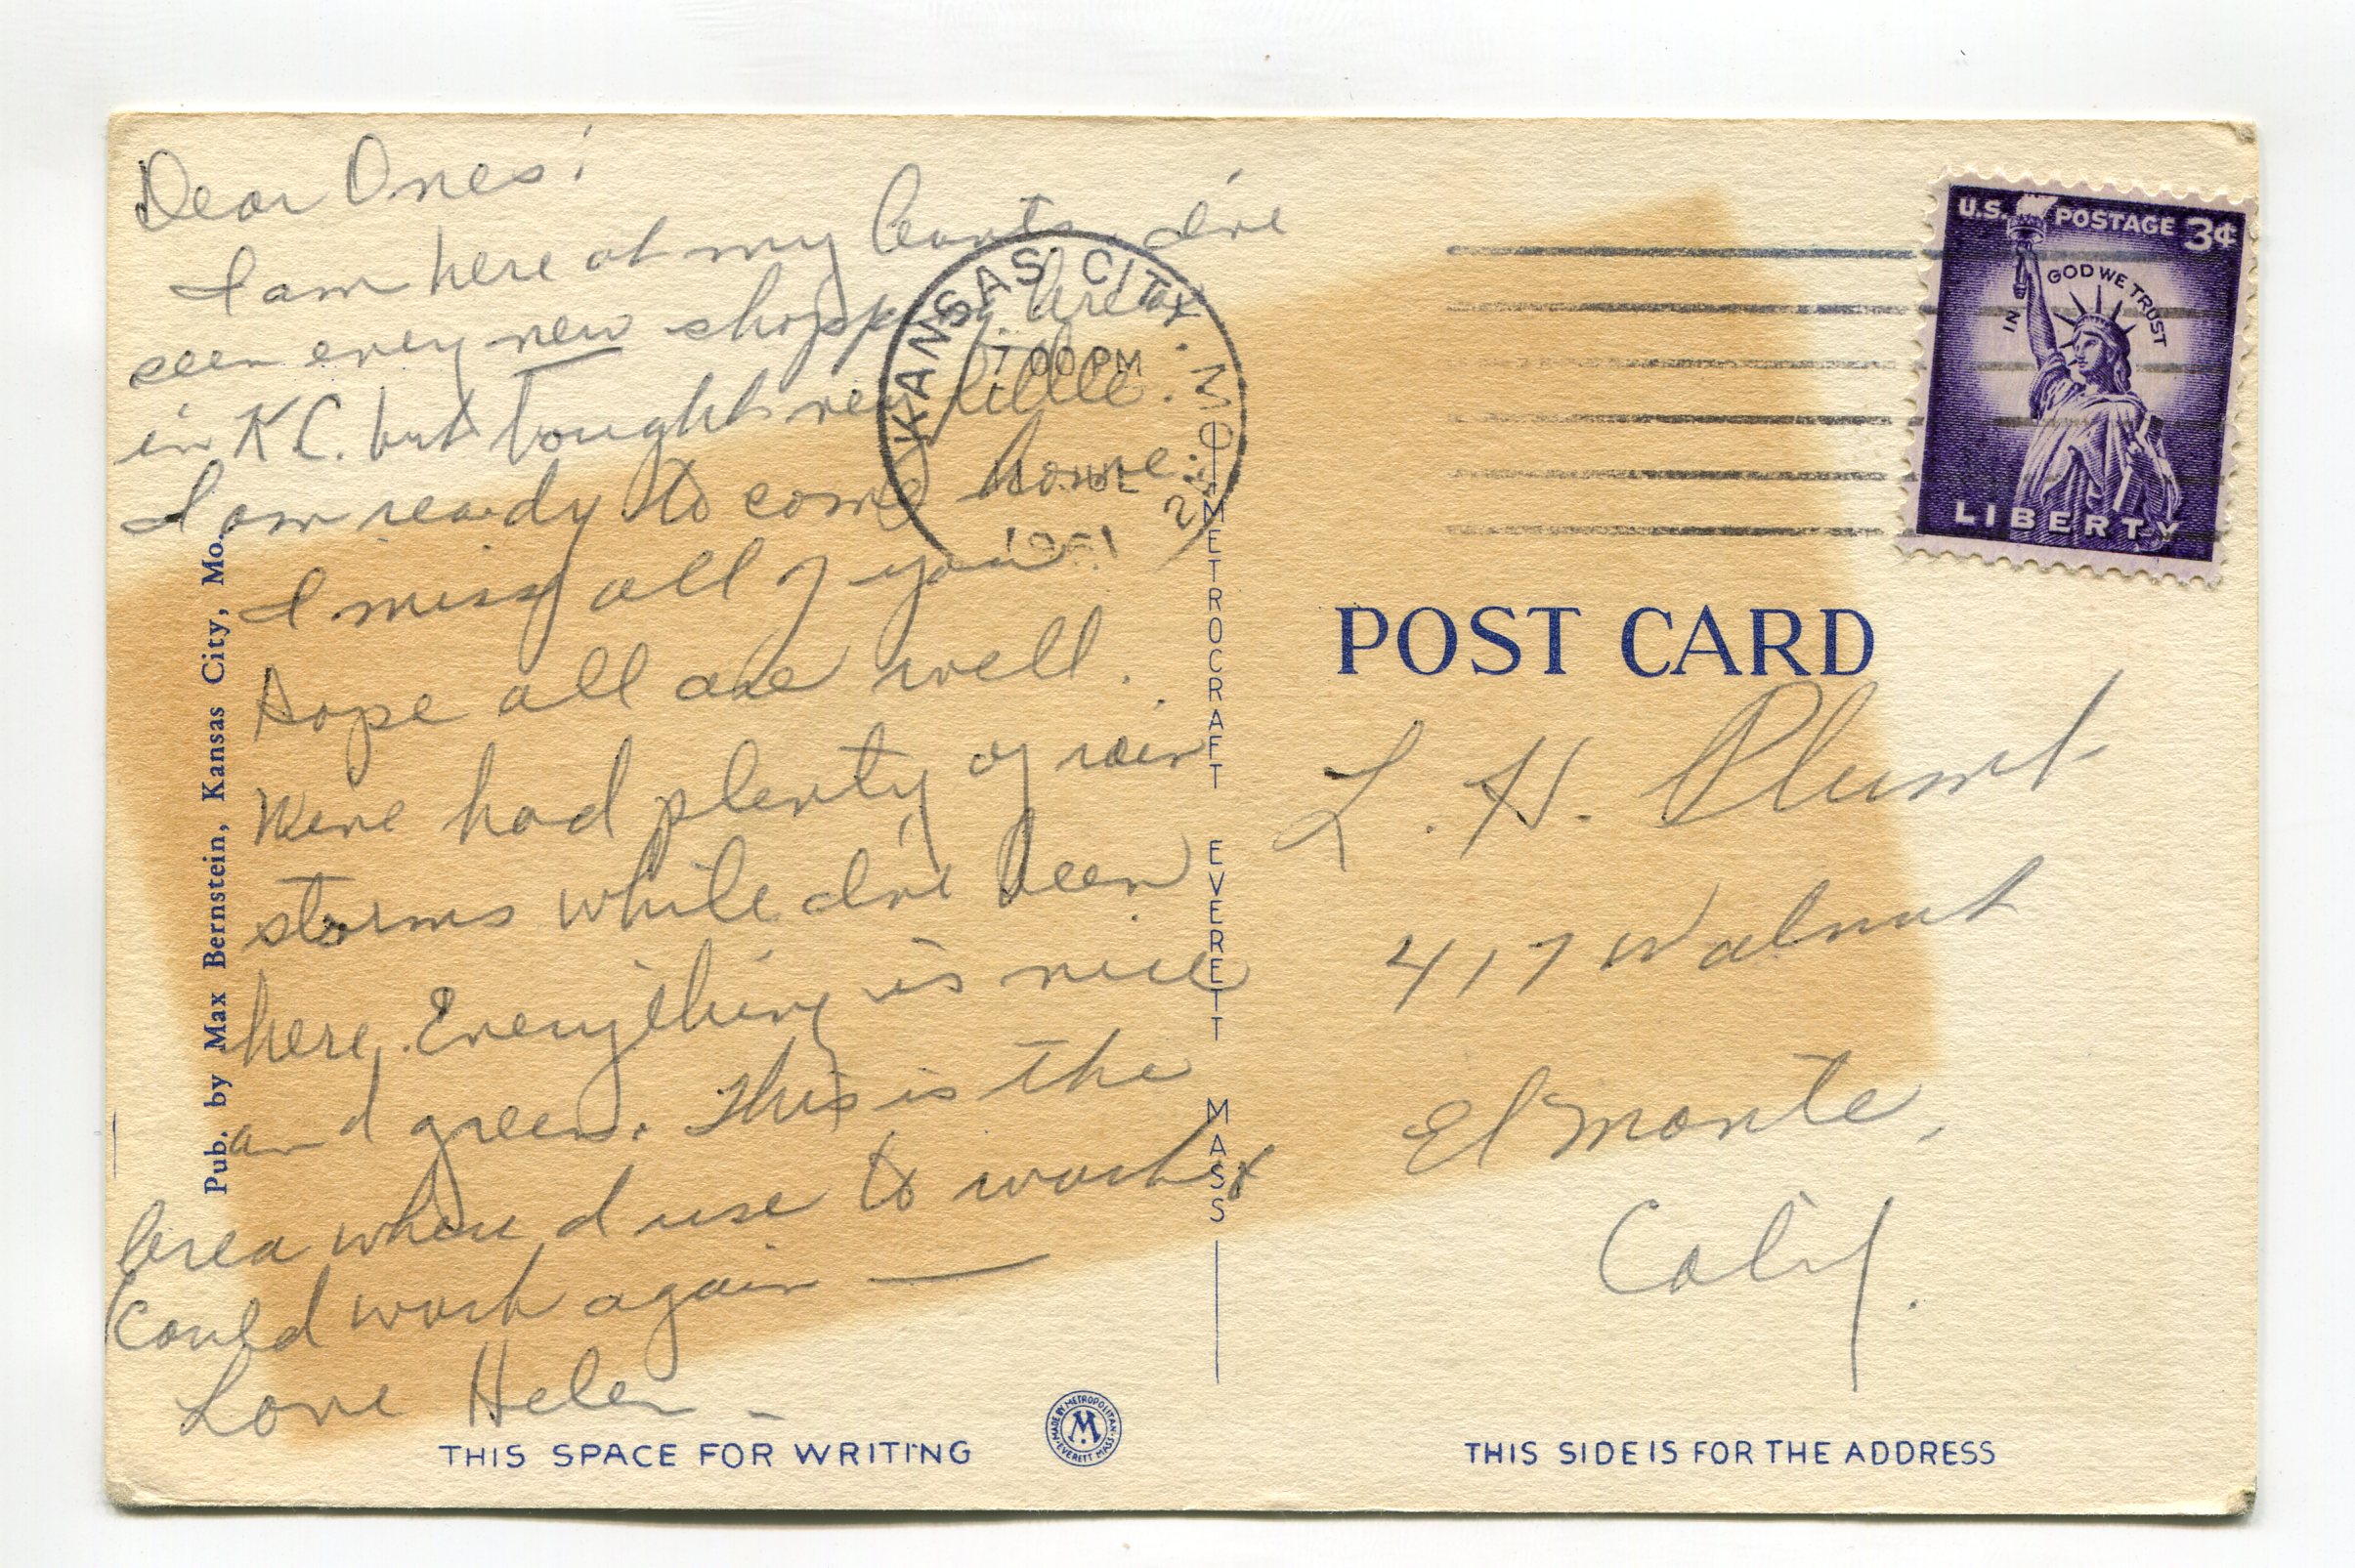 Dear Ones!
I am here at my Aunts. I've
seen every new shopping area
in K C. but bought very little.
I am ready to come home.
I miss all of you.
Hope all are well.
We've had plenty of rain
storms while I've been
here. Everything is nice
and green. This is the
area where I use to work
Could work again —
Love Helen -
Pub. by Max Bernstein, Kansas City, Mo.
THIS SPACE FOR WRITING
KANSAS CITY, MO.
7 00 PM
JUL
1961
METROCRAFT EVERETT MASS
MADE BY METROPOLITAN
M
EVERETT MASS.
U.S. POSTAGE 3¢
IN GOD WE TRUST
LIBERTY
POST CARD
L. H.
417 Walnut
El Monte,
Calif.
THIS SIDE IS FOR THE ADDRESS